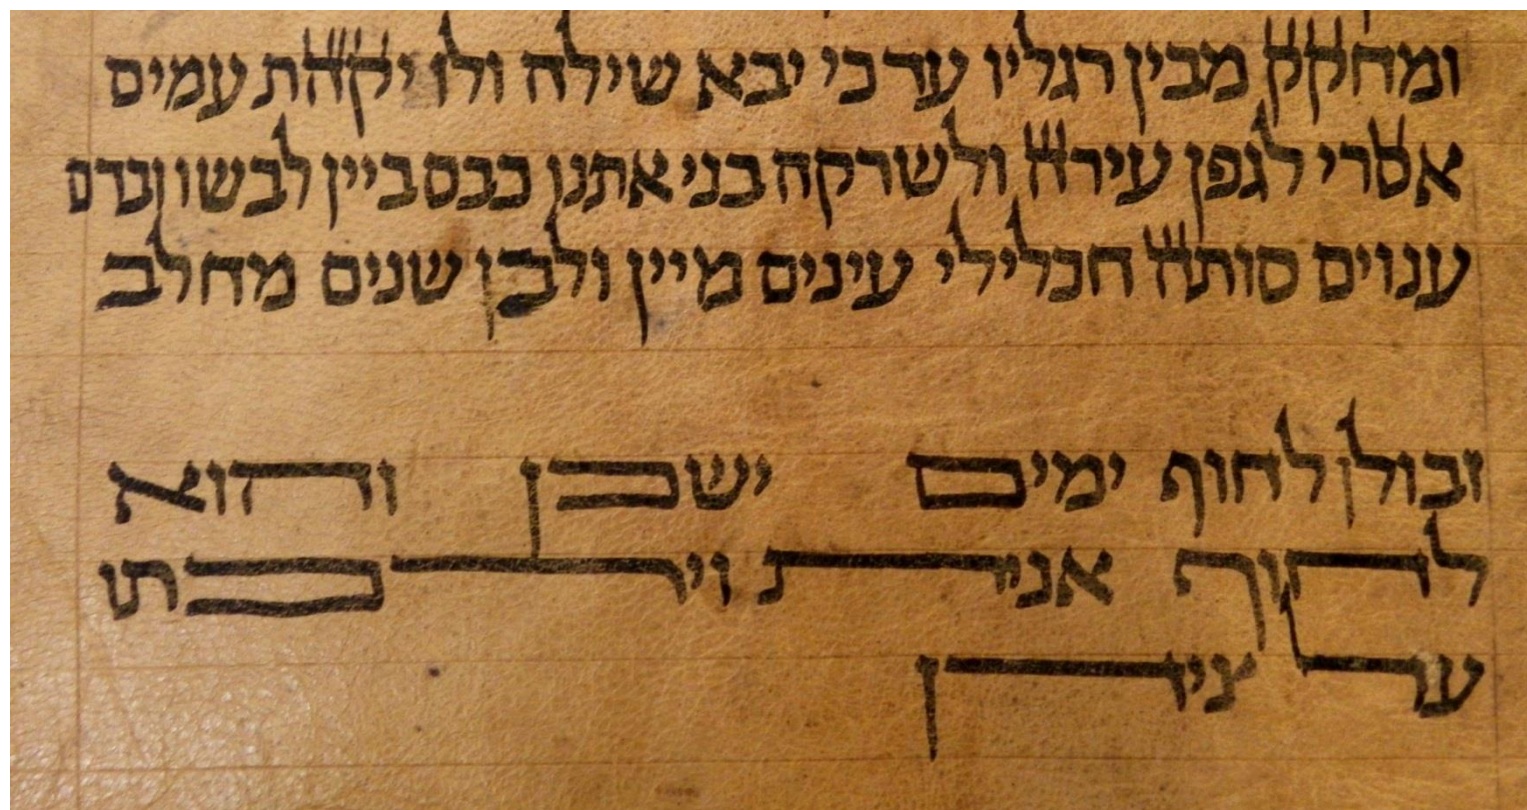 ומחקק מבין רגליו עד כי יבא שילה ולו יקהת עמים
אסרי לגפן עירה ולשרקה בני אתנו כבס ביין לבשו ובדם
ענוים סותה חכלילי עינים מיין ולבן שנים מחלב
זבולן לחוף ימים ישכן והוא
לחוף אנית וירכתו
על צידן